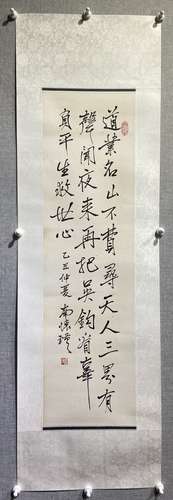 道業名山不費尋天人三界有
聲聞夜來再把吳鈎看辜
負平生救世心
乙丑仲夏 南懷瑾